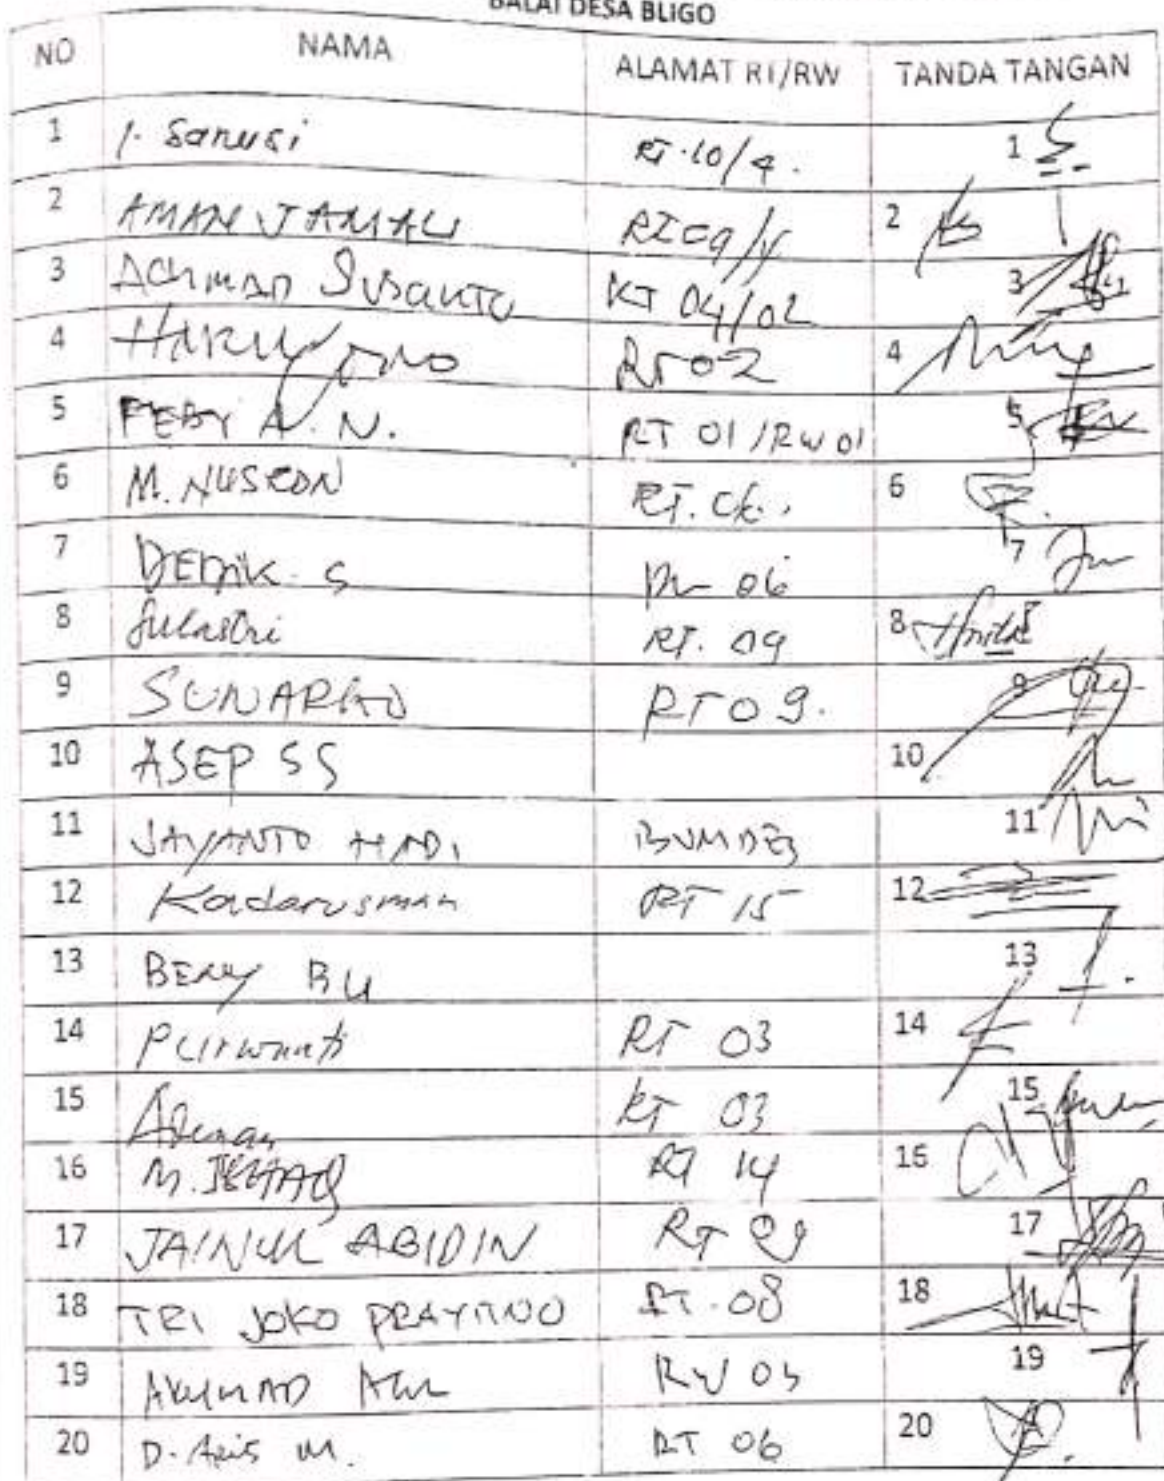 BALAI DESA BLIGO
NO NAMA ALAMAT RT/RW TANDA TANGAN
1 1. Sanusi RT.10/4. 1
2 AMAN JAMALI RT 09/ 2
3 ACHMAD SUSANTO RT 04/02 3
4 HARIYONO RT 02 4
5 FEBY A. N. RT 01/RW 01 5
6 M. RT. 6
7 DEDIK. S 06 7
8 Sulastri RT. 09 8
9 SUNARKO RT 09. 9
10 ASEP SS 10
11 JAYANTO HADI BUMDES 11
12 Kadarusman RT 15 12
13 BENY BU 13
14 Purwanti RT 03 14
15 RT 03 15
16 M. RT 14 16
17 JAINUL ABIDIN RT 17
18 TRI JOKO PRAYITNO RT.08 18
19 AKHMAD RW 19
20 D. Aris M. RT 06 20